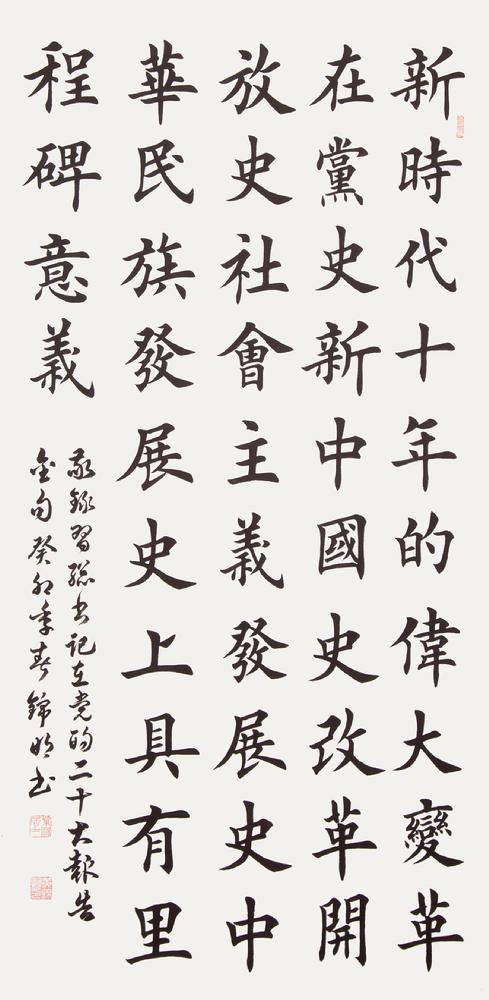 新時代十年的偉大變革
在黨史新中國史改革開
放史社會主義發展史中
華民族發展史上具有里
程碑意義
敬錄習總書記在党的二十大報告
金句癸卯季春錦明書